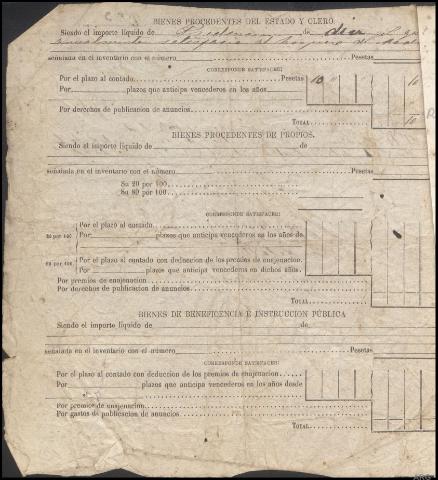 BIENES PROCEDENTES DEL ESTADO Y CLERO.
Siendo el importe líquido de de diez
señalada en el inventario con el número Pesetas
CORRESPONDE SATISFACER:
Por el plazo al contado Pesetas 10 10
Por plazos que anticipa vencederos en los años
Por derechos de publicacion de anuncios
TOTAL 10
BIENES PROCEDENTES DE PROPIOS.
Siendo el importe líquido de de
señalada en el inventario con el número Pesetas
Su 20 por 100
Su 80 por 100
CORRESPONDE SATISFACER:
Por el plazo al contado
20 por 100 Por plazos que anticipa vencederos en los años de
Por el plazo al contado con deduccion de los premios de enajenacion
80 por 100 Por plazos que anticipa vencederos en dichos años
Por premios de enajenacion
Por derechos de publicacion de anuncios
TOTAL
BIENES DE BENEFICENCIA É INSTRUCCION PÚBLICA
Siendo el importe líquido de de
señalada en el inventario con el número Pesetas
CORRESPONDE SATISFACER:
Por el plazo al contado con deduccion de los premios de enajenacion
Por plazos que anticipa vencederos en los años desde
Por premios de enajenacion
Por gastos de publicacion de anuncios
TOTAL